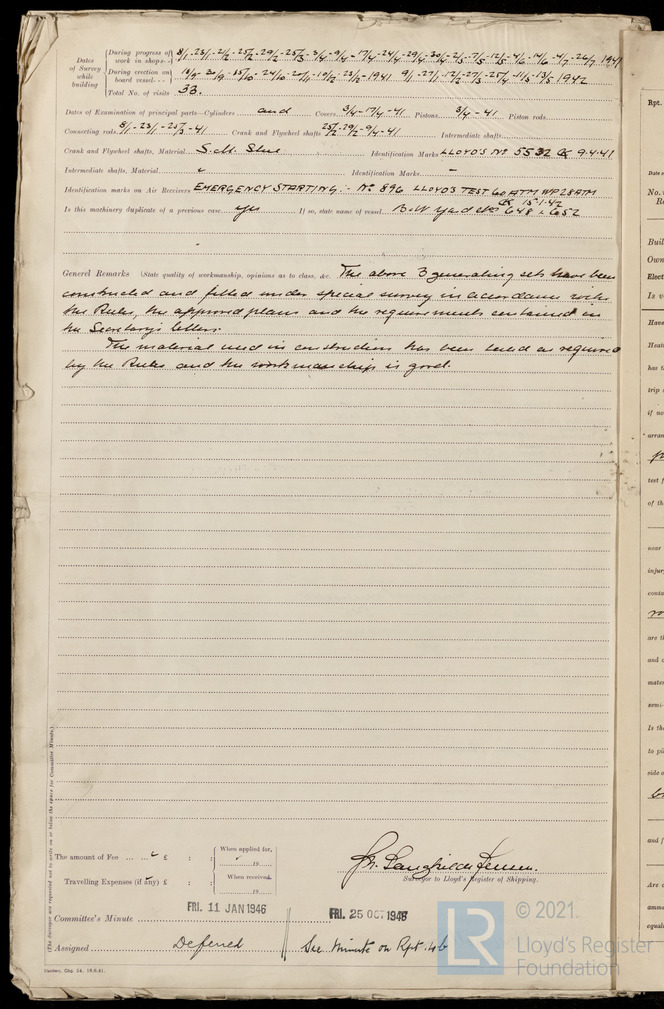 Dates of Survey while building
During progress of work in shops - - 8/1 - 23/1 - 21/2 - 25/2 - 29/2 - 25/3 - 3/4 - 9/4 - 17/4 - 24/4 - 29/4 - 30/4 - 2/5 - 7/5 - 12/5 - 4/6 - 14/6 - 4/7 - 26/7 1941
During erection on board vessel - - - 1941 1942
Total No. of visits 33.
Dates of Examination of principal parts—Cylinders and Covers 3/4 - 17/4 - 41 Pistons 3/4 - 41 Piston rods
Connecting rods 8/1 - 23/1 - 25/3 - 41 Crank and Flywheel shafts 25/2 - 29/2 - 9/4 - 41 Intermediate shafts
Crank and Flywheel shafts, Material S.M. Steel Identification Marks LLOYD'S No 5532 9.4.41
Intermediate shafts, Material Identification Marks -
Identification marks on Air Receivers EMERGENCY STARTING :- No 896 LLOYD'S TEST 60 ATM WP 28 ATM
15-1-42
Is this machinery duplicate of a previous case yes If so, state name of vessel B&W Yard Nos 648 & 652
General Remarks (State quality of workmanship, opinions as to class, &c. The above 3 generating sets have been
constructed and fitted under special survey in accordance with
the Rules, the approved plans and the requirements contained in
the Secretary's letters.
The material used in construction has been tested as required
by the Rules and the workmanship is good.
(The Surveyor are requested not to write on or below the space for Committee Minute.)
The amount of Fee ... £ : :
When applied for,
19
Travelling Expenses (if any) £ : :
When received,
19
Surveyor to Lloyd's Register of Shipping.
Committee's Minute FRI. 11 JAN 1946 FRI. 25 OCT 1946
Assigned Deferred See Minute on Rpt. 4b
LR
© 2021.
Lloyd's Register
Foundation
Rpt.
Date
No.
Re
Buil
Own
Elect
Is v
Have
Heat
has t
trip
if no
arran
test f
of th
near
injur
conta
are th
and c
mater
semi-
Is the
to pi
side o
and f
Are
amme
equal